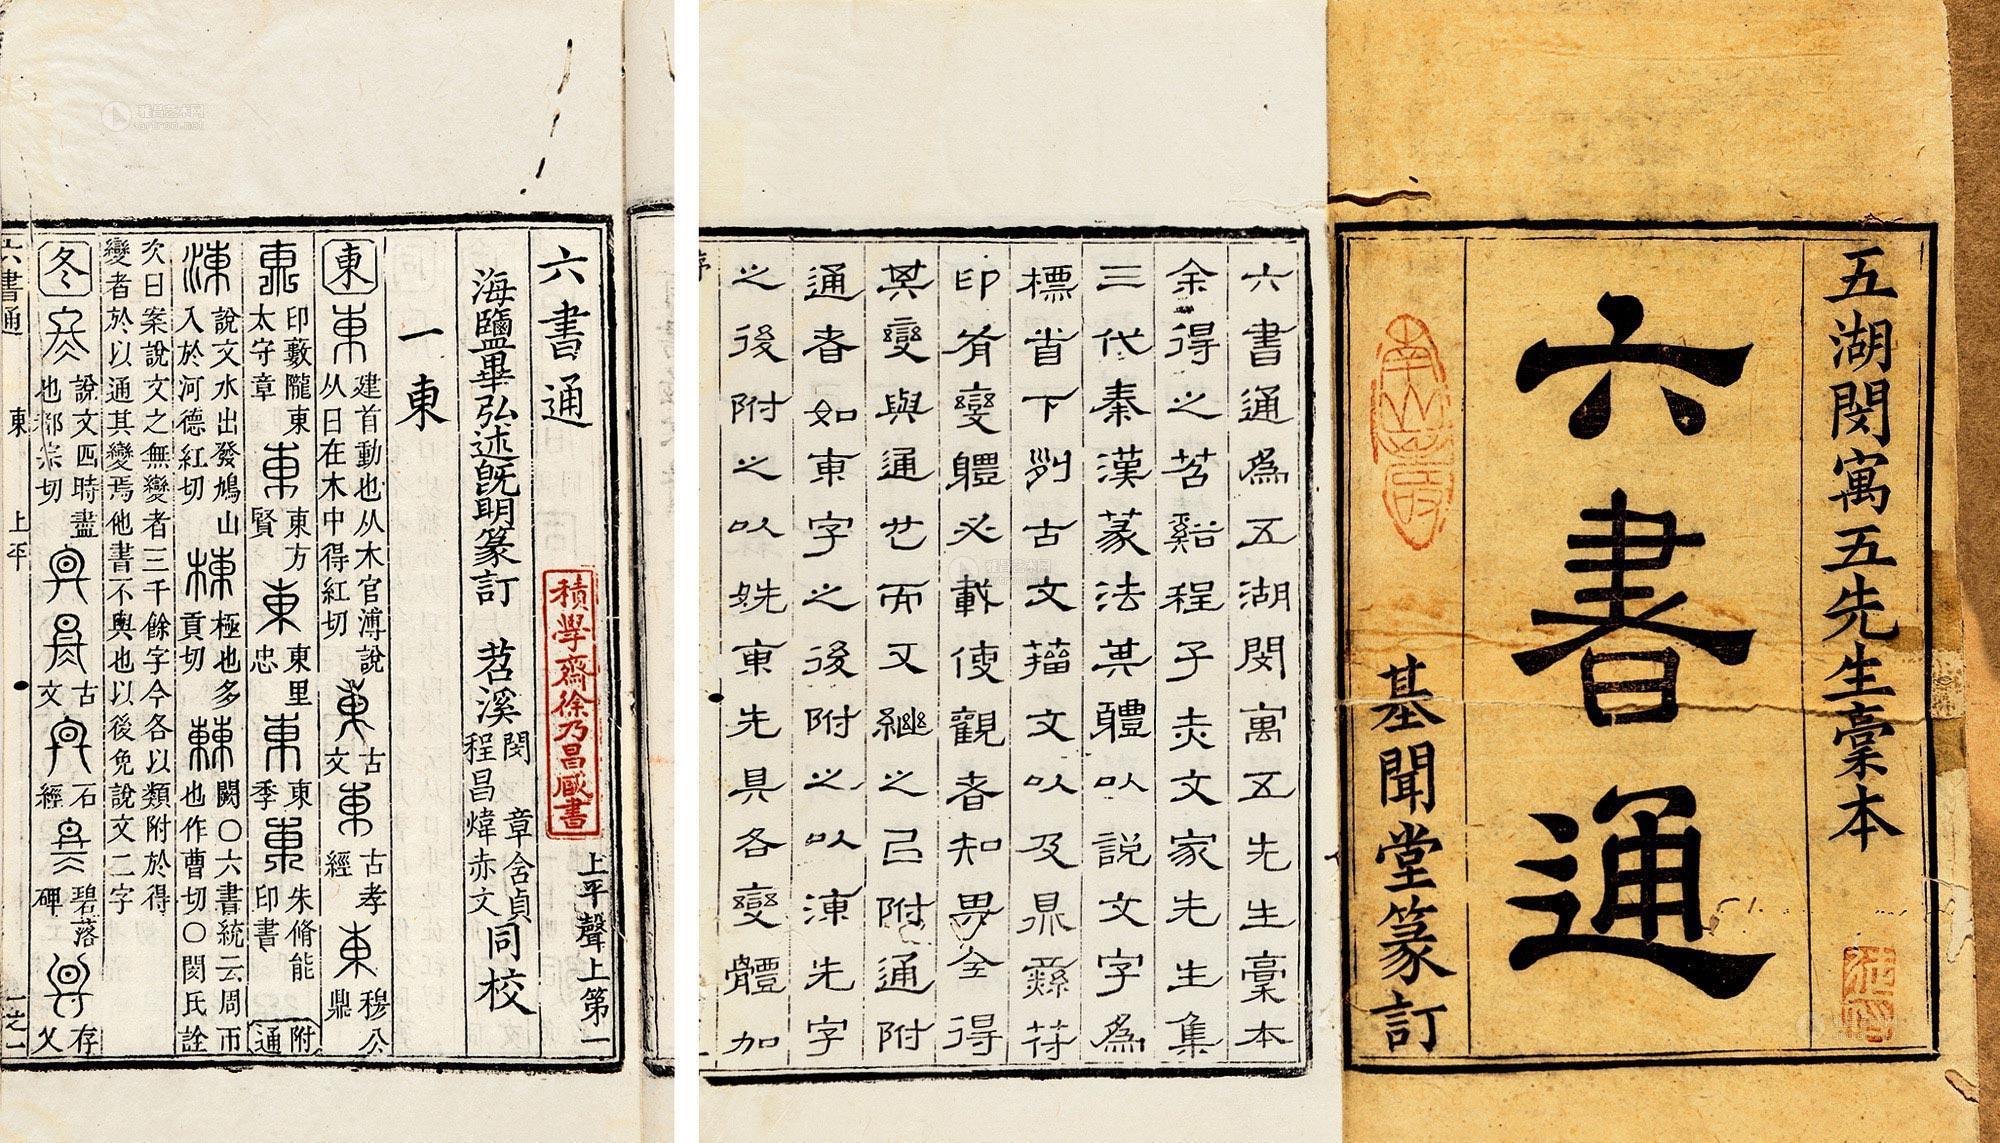 五湖閔寓五先生稾本
六書通
基聞堂篆訂
六書通爲五湖閔寓五先生稾本
余得之苕谿程子赤文家先生集
三代秦漢篆法其體以說文字爲
標省下列古文籀文以及鼎彝符
印有變體必載使觀者知畢全得
其變與通也而又繼之己附通附
通者如東字之後附之以涷先字
之後附之以姺東先具各變體加
序
六書通 上平聲上第一
積學齋徐乃昌藏書
海鹽畢弘述旣明篆訂 苕溪 閔章含貞 程昌煒赤文 同校
一東
東 東 建首動也从木官溥說从日在木中得紅切 東 古文 東 古孝經 東 穆公鼎
東 印藪隴東太守章 東 東方賢 東 東里忠 東 東季 東 朱脩能印書 附通
涷 說文水出發鳩山入於河德紅切 棟 極也多貢切 㯥 闕〇六書統云周帀也作曹切〇閔氏詮
次曰案說文之無變者三千餘字今各以類附於得
變者於以通其變焉他書不與也以後免說文二字
冬 冬 說文四時盡也都宗切 古文 石經 碧落碑 存乂
六書通 東 上平 一之一
雅昌艺术网
artron.net
雅昌艺术网